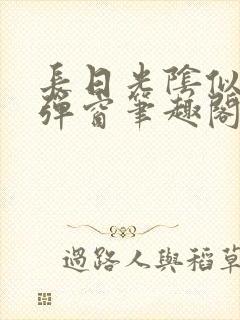 長日光陰似
彈窗筆趣閣
過路人與稻草